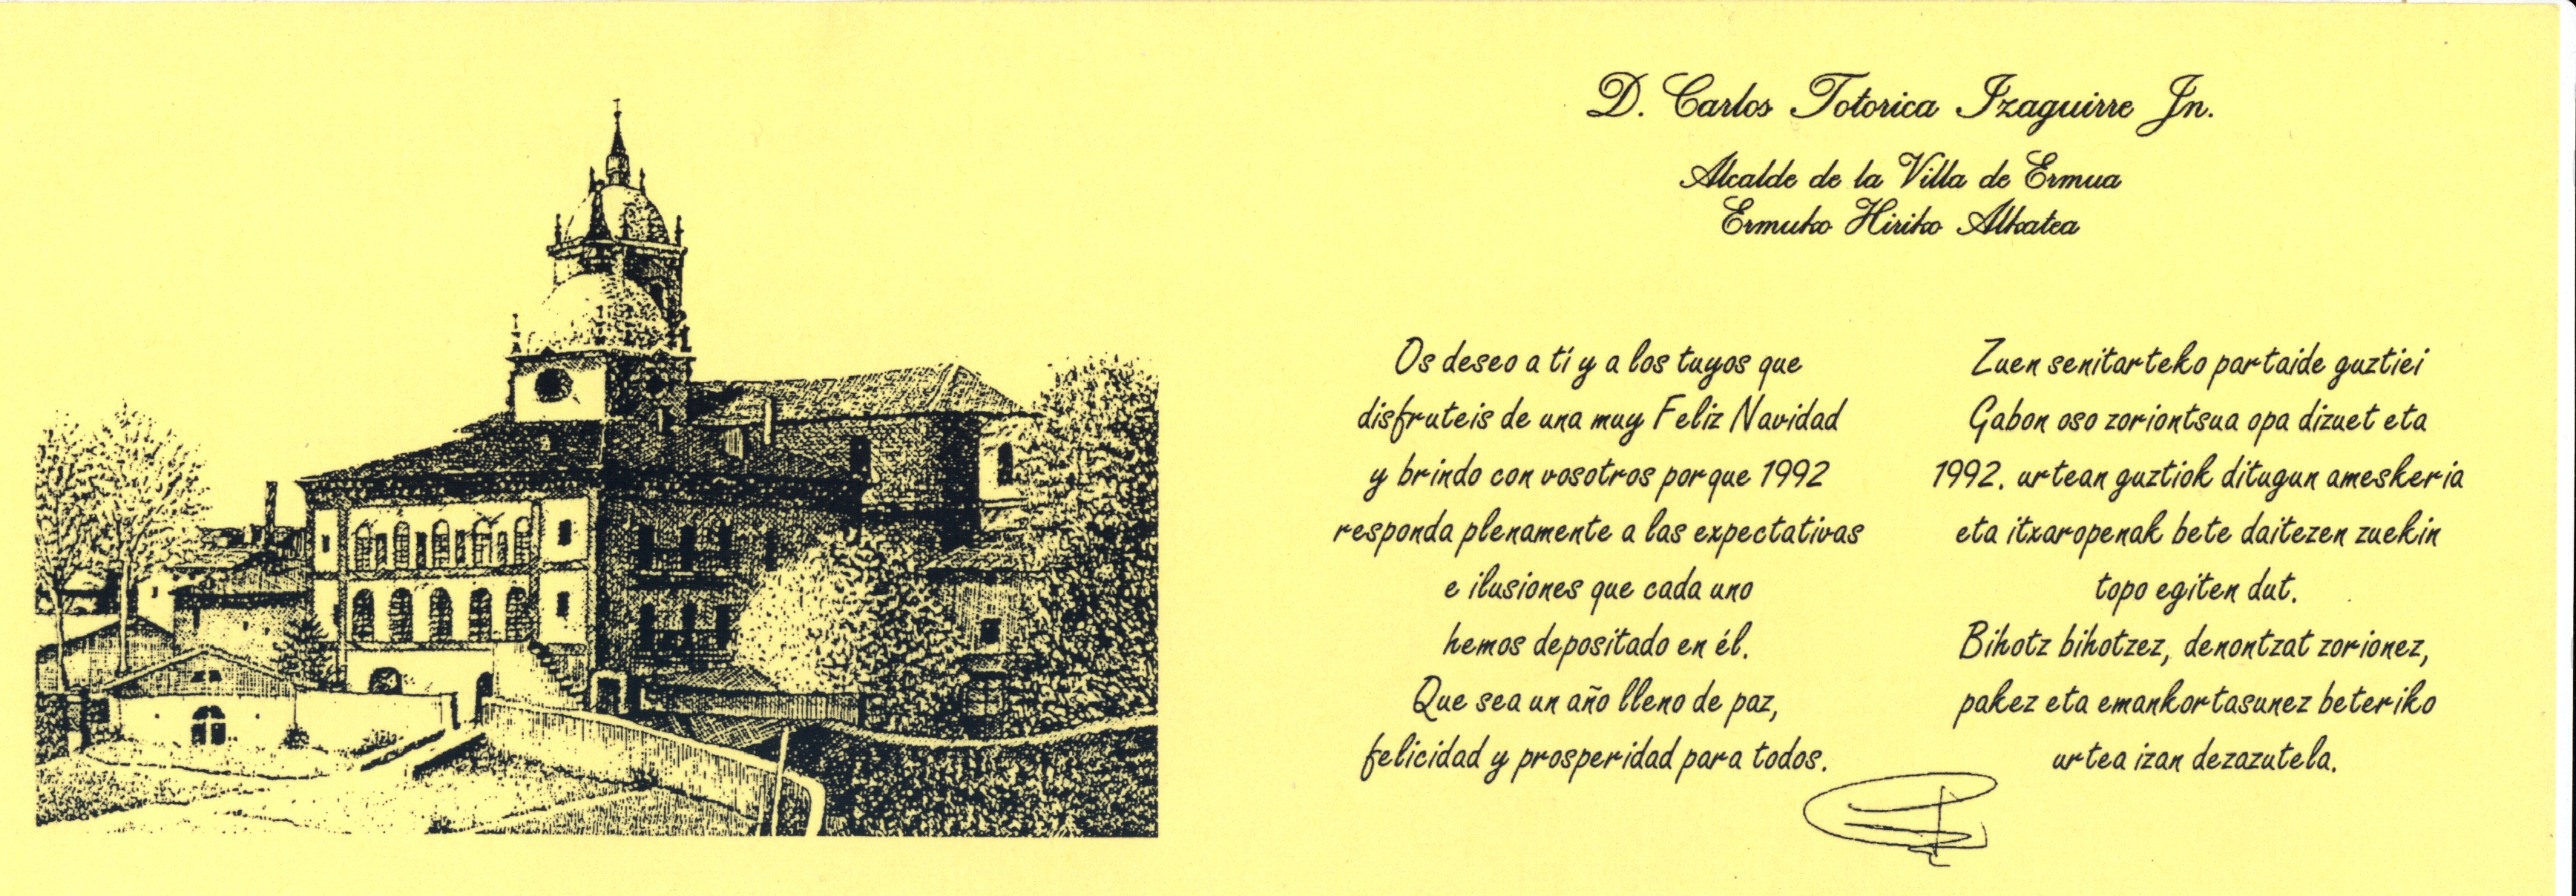 D. Carlos Totorica Izaguirre Jn.
Alcalde de la Villa de Ermua
Ermuko Hiriko Alkatea
Os deseo a tí y a los tuyos que
disfruteis de una muy Feliz Navidad
y brindo con vosotros porque 1992
responda plenamente a las expectativas
e ilusiones que cada uno
hemos depositado en él.
Que sea un año lleno de paz,
felicidad y prosperidad para todos.
Zuen senitarteko partaide guztiei
Gabon oso zoriontsua opa dizuet eta
1992. urtean guztiok ditugun ameskeria
eta itxaropenak bete daitezen zuekin
topo egiten dut.
Bihotz bihotzez, denontzat zorionez,
pakez eta emankortasunez beteriko
urtea izan dezazutela.